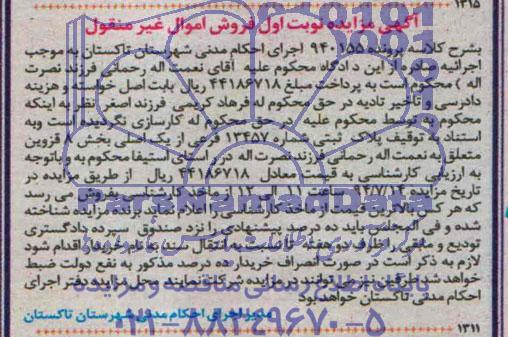 ۱۳۱۵
آگهی مزایده نوبت اول فروش اموال غیر منقول
بشرح کلاسه پرونده ۹۴۰۱۵۵ اجرای احکام مدنی شهرستان تاکستان به موجب
اجرائیه صادره از این دادگاه محکوم علیه آقای نعمت اله رحمانی فرزند نصرت
اله ) محکوم است به پرداخت مبلغ ۴۴۱۸۶۷۱۸ ریال بابت اصل خواسته و هزینه
دادرسی و تاخیر تادیه در حق محکوم له فرهاد کریمی فرزند اصغر نظر به اینکه
محکوم به توسط محکوم علیه در حق محکوم له کارسازی نگردیده است وبه
استناد به توقیف پلاک ثبتی شماره ۱۳۴۵۷ فرعی از یک اصلی بخش ۸ قزوین
متعلق به نعمت اله رحمانی فرزند نصرت اله در راستای استیفا محکوم به و باتوجه
به ارزیابی کارشناسی به قیمت معادل ۴۴۱۸۶۷۱۸ ریال از طریق مزایده در
تاریخ مزایده ۹۴/۷/۱۴ ساعت ۱۱ الی ۱۲ از ماخذ کارشناسی بفروش می رسد
که هر کس بالاترین قیمت از ماخذ کارشناسی را اعلام نماید برنده مزایده شناخته
شده و فی المجلس باید ده درصد پیشنهادی را نزد صندوق سپرده دادگستری
تودیع و مابقی را ظرف دو هفته تا نسبت به انتقال سند به نام خریدار اقدام شود
لازم به ذکر است در صورت انصراف خریدار ده درصد مذکور به نفع دولت ضبط
خواهد شد طرفین نیز می توانند در مزایده شرکت نمایند محل مزایده دفتر اجرای
احکام مدنی تاکستان خواهد بود
مدیر اجرای احکام مدنی شهرستان تاکستان
ParsNamadData
۰۲۱-۸۸۳۴۹۶۷۰-۵
۱۳۱۱